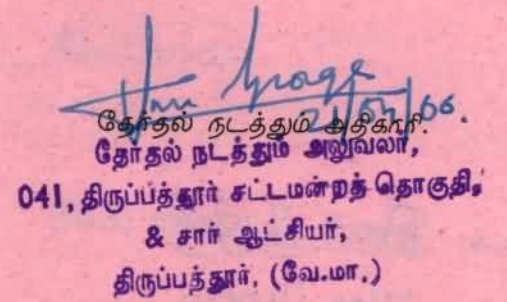 தேர்தல் நடத்தும் அதிகாரி.
தேர்தல் நடத்தும் அலுவலர்,
041, திருப்பத்தூர் சட்டமன்றத் தொகுதி,
& சார் ஆட்சியர்,
திருப்பத்தூர், (வே.மா.)